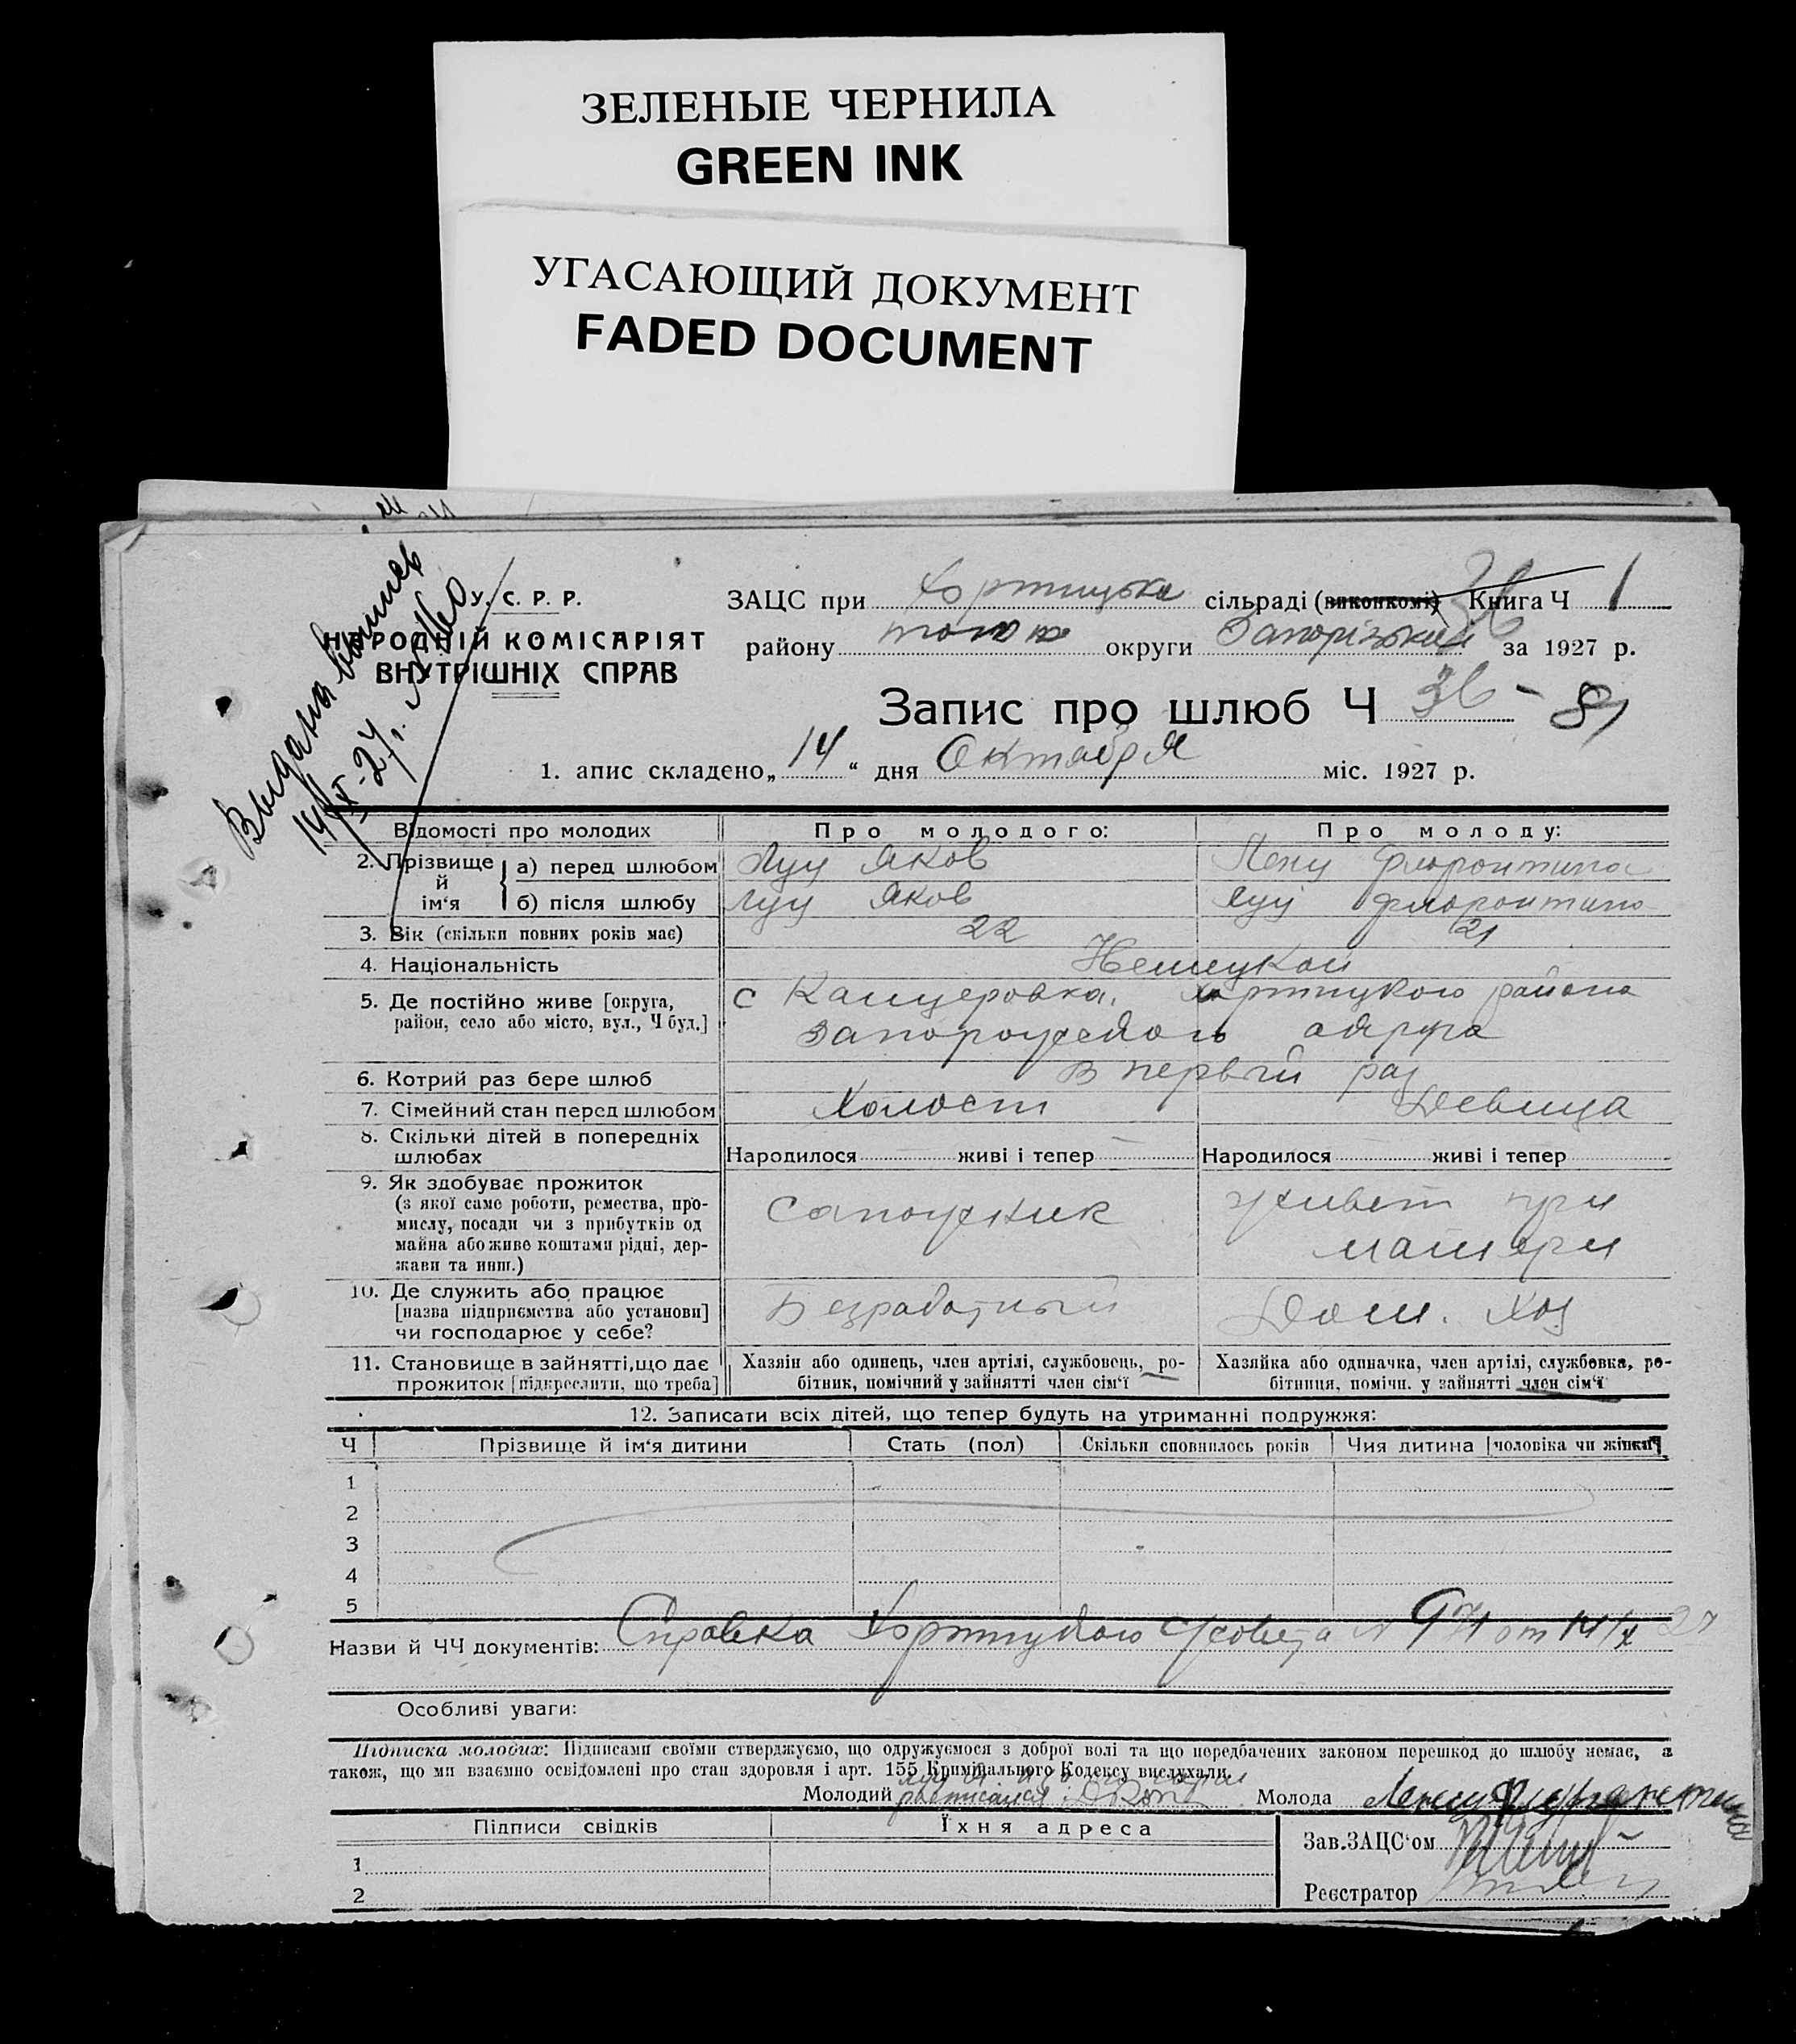 ЗЕЛЕНЫЕ ЧЕРНИЛА
GREEN INK
УГАСАЮЩИЙ ДОКУМЕНТ
FADED DOCUMENT
Выдана выпись
14/X-27г.
У. С. Р. Р.
НАРОДНІЙ КОМІСАРІЯТ
ВНУТРІШНІХ СПРАВ
ЗАЦС при Хортицька сільраді (виконкомі) 36 Книга Ч 1
району округи Запорізький за 1927 р.
Запис про шлюб Ч 36 - 8
1. апис складено „14“ дня Октября міс. 1927 р.
Відомості про молодих Про молодого: Про молоду:
2. Прізвище й ім‘я а) перед шлюбом Луц Яков Ленц Флорентина
б) після шлюбу Луц Яков Луц Флорентина
3. Вік (скільки повних років має) 22 21
4. Національність Немецкой
5. Де постійно живе [округа, с Канцеровка, Хортицкого района
район, село або місто, вул., Ч буд.] Запорожского округа
6. Котрий раз бере шлюб в первый раз
7. Сімейний стан перед шлюбом Холост Девица
8. Скільки дітей в попередніх шлюбах Народилося живі і тепер Народилося живі і тепер
9. Як здобуває прожиток Сапожник живет при матери
(з якої саме роботи, ремества, про-
мислу, посади чи з прибутків од
майна або живе коштами рідні, дер-
жави та инш.)
10. Де служить або працює Безработный Дом. хоз
[назва підприємства або установи]
чи господарює у себе?
11. Становище в зайнятті, що дає Хазяін або одинець, член артілі, службовець, ро- Хазяйка або одиначка, член артілі, службовка, ро-
прожиток [підкреслити, що треба] бітник, помічний у зайнятті член сім‘ї бітниця, помічн. у зайнятті член сім‘ї
12. Записати всіх дітей, що тепер будуть на утриманні подружжя:
Ч Прізвище й ім‘я дитини Стать (пол) Скільки сповнилось років Чия дитина [чоловіка чи жінки]
1
2
3
4
5
Назви й ЧЧ документів: Справка Хортицкого с/совета N от 14/X 27
Особливі уваги:
Підписка молодих: Підписами своїми стверджуємо, що одружуємося з доброї волі та що передбачених законом перешкод до шлюбу немає, а
також, що ми взаємно освідомлені про стан здоровля і арт. 155 Кримінального Кодексу вислухали.
Молодий расписался Молода Ленц Флорентина
Підписи свідків Їхня адреса
Зав.ЗАЦС‘ом
1
Реєстратор
2